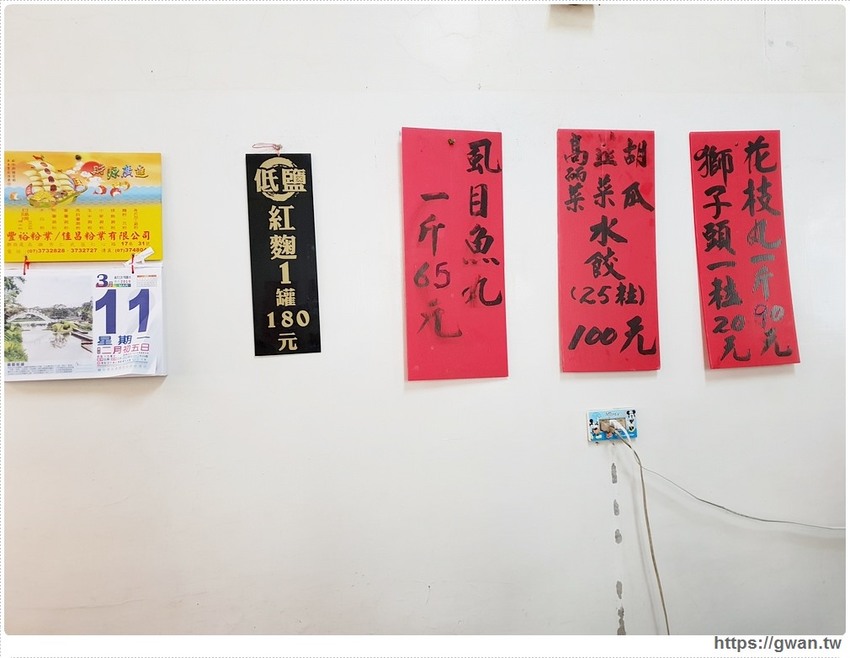 豐裕粉業/佳昌粉業有限公司
3
11
星期一
二月初五日
低鹽
紅麴1罐180元
虱目魚丸
一斤65元
胡瓜
韮菜
高麗菜
水餃
(25粒)
100元
花枝丸一斤90元
獅子頭一粒20元
https://gwan.tw